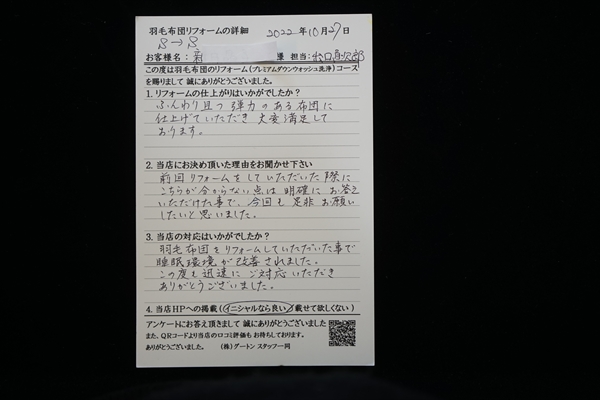 羽毛布団リフォームの詳細 2022年10月27日
S→S
お客様名: 様 担当:松口真次郎
この度は羽毛布団のリフォーム(プレミアムダウンウォッシュ洗浄)コース
を賜りまして誠にありがとうございました。
1. リフォームの仕上がりはいかがでしたか?
ふんわり且つ弾力のある布団に
仕上げていただき大変満足して
おります。
2. 当店にお決め頂いた理由をお聞かせ下さい
前回リフォームをしていただいた際に
こちらが分からない点は明確にお答え
いただけた事で、今回も是非お願い
したいと思いました。
3. 当店の対応はいかがでしたか?
羽毛布団をリフォームしていただいた事で
睡眠環境が改善されました。
この度も迅速にご対応いただき
ありがとうございました。
4. 当店HPへの掲載(イニシャルなら良い/載せて欲しくない)
アンケートにお答え頂きまして誠にありがとうございました
また、QRコードより当店の口コミ評価もお待ちしております。
ありがとうございました。 (株)ダートン スタッフ一同